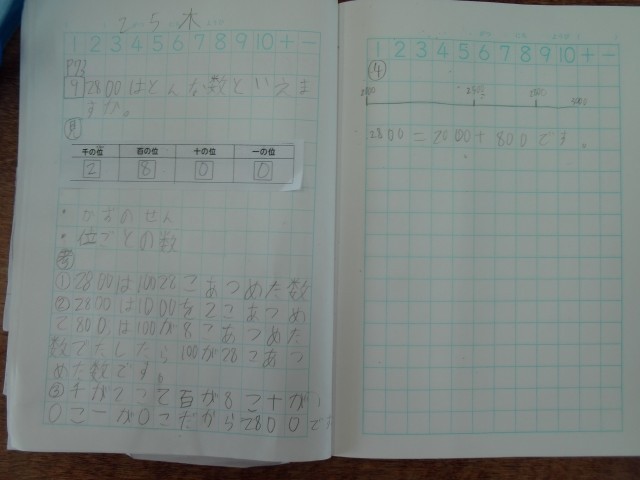 2 5 木
1 2 3 4 5 6 7 8 9 10 + -
P73
9 2800はどんな数といえま
すか。
見
千の位 百の位 十の位 一の位
2 8 0 0
・かずのせん
・位ごとの数
考
①2800は100を28こあつめた数
②2800は1000を2こあつめ
て800は100が8こあつめた
数でたしたら100が28こあつ
めた数です。
③千が2こで百が8こ十が
0こ一が0こだから2800です
1 2 3 4 5 6 7 8 9 10 + -
④
2800=2000+800です。